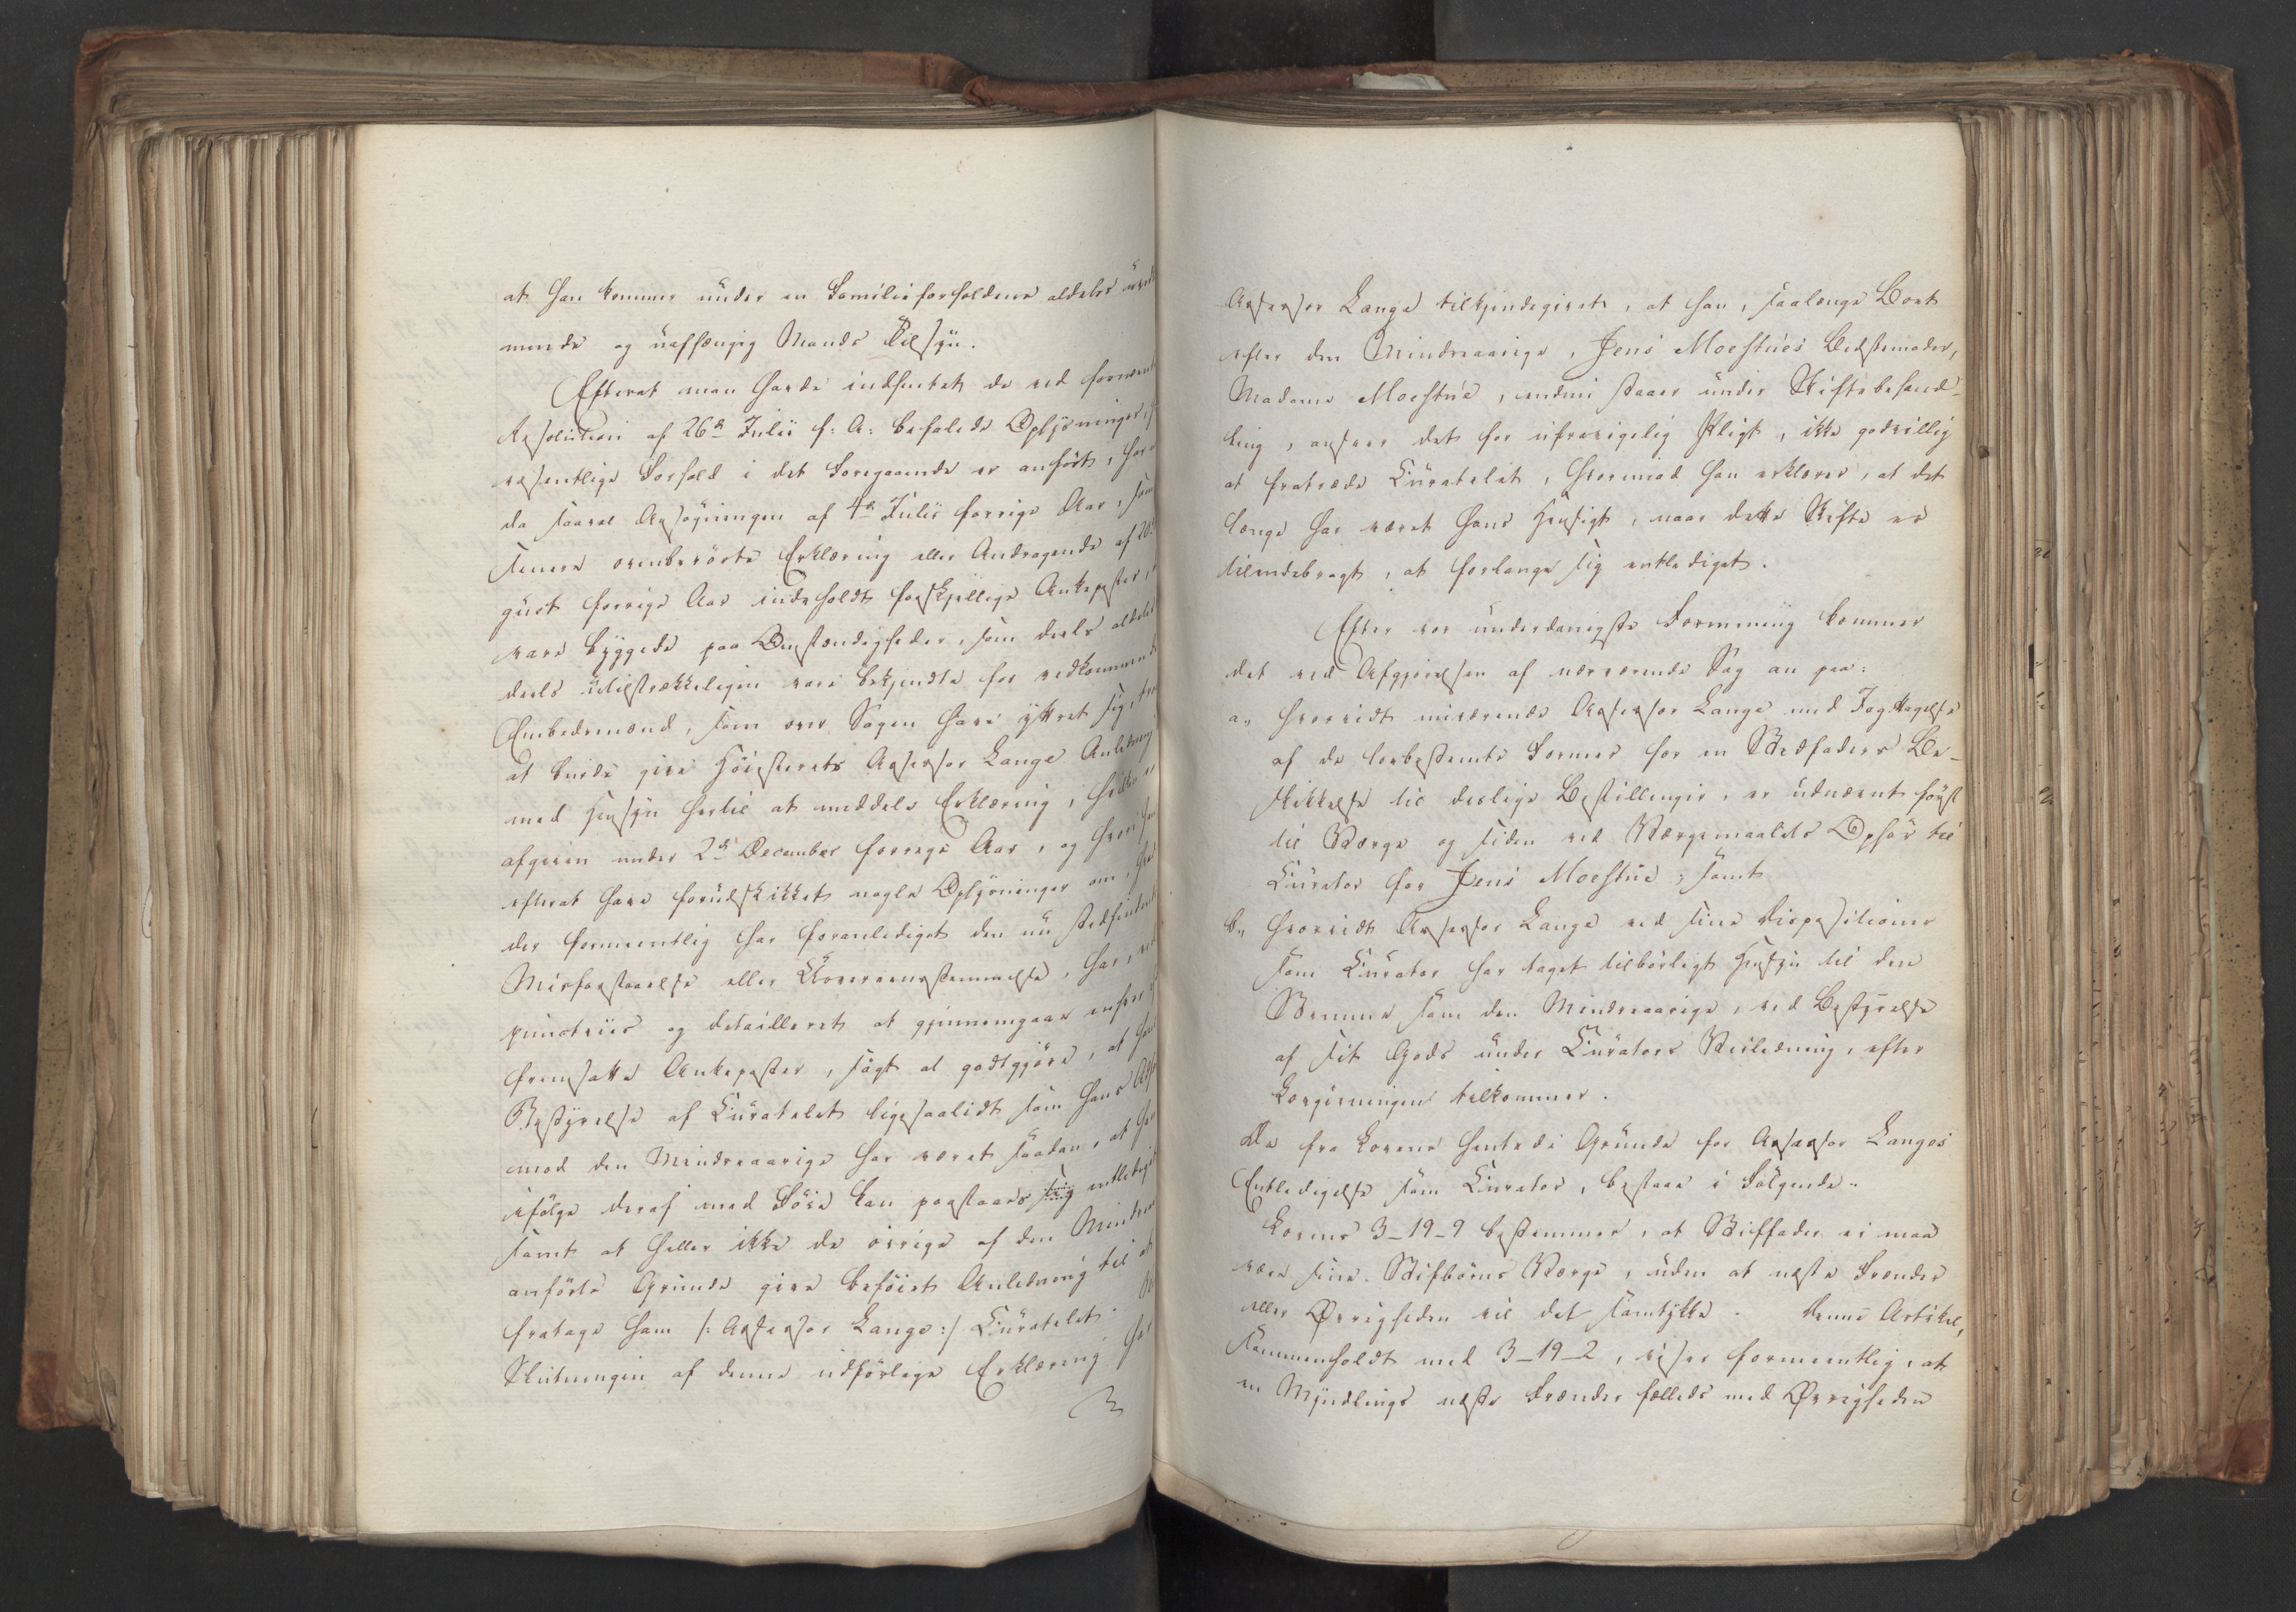 at han kommer under en Familieforholdene aldeles
mende og uafhængig Mands Tilsyn.
Efterat man havde indhentet de ved fornævnt
Resolution af 26de Julii f: A: befalede Oplysninger,
væsentlige Forhold i det Foregaaende er anført,
da saavel Ansøgningen af 4de Julii forrige Aar, som
senere ovenberørte Erklæring eller Andragende af 20de
gust forrige Aar indeholdt forskjellige Ankeposter,
vare byggede paa Omstændigheder, som deels aldeles
deels utilstrækkeligen vare bekjendte for vedkommende
Embedsmænd, som over Sagen have yttret sig,
at burde give Høiesterets Assessor Lange Anledning
med Hensyn hertil at meddele Erklæring,
afgiven under 2den December forrige Aar, og hvori han
efterat have forudskikket nogle Oplysninger om,
der formeentlig har foranlediget den nu stedfindende
Misforstaaelse eller Uovereensstemmelse, har,
punctviis og detailleret at gjennemgaae enhver
fremsatte Ankeposter, søgt at godtgjøre, at hans
Bestyrelse af Curatelet ligesaalidt som hans
mod den Mindreaarige har været saadan, at han
ifølge deraf med Føie kan paastaaes sig entlediget
samt at heller ikke de øvrige af den
anførte Grunde give beføiet Anledning til at
fratage ham /: Assessor Lange :/ Curatelet.
Slutningen af denne udførlige Erklæring har
Assessor Lange tilkjendegivet, at han, saalænge Boet
efter den Mindreaarige, Jens Moestues Bedstemoder,
Madame Moestue, endnu staaer under Skiftebehand-
ling, ansaae det for ufravigelig Pligt, ikke godvillig
at fratræde Curatelet, hvorimod han erklærer, at det
længe har været hans Hensigt, naar dette Skifte er
tilendebragt, at forlange sig entlediget.
Efter vor underdanigste Formening kommer
det ved Afgjørelsen af nærværende Sag an paa:
a,, hvorvidt nuværende Assessor Lange med Iagttagelse
af de lovbestemte Former for en Stedfaders Be-
skikkelse til deslige Bestillinger, er udnævnt først
til Værge og siden ved Værgemaalets Ophør til
Curator for Jens Moestue; samt
b,, hvorvidt Assessor Lange ved sine Dispositioner
som Curator har taget tilbørligt Hensyn til den
Stemme som den Mindreaarige, ved Bestyrelse
af sit Gods under Curators Veiledning, efter
Lovgivningen tilkommer.
De fra Lovene hentede Grunde for Assessor Langes
Entledigelse som Curator, bestaae i Følgende.
Lovens 3-19-9 bestemmer, at Stiffader ei maa
være sine Stifbørns Værge, uden at næste Frænder
eller Øvrigheden vil det samtykke. Denne Artikel,
sammenholdt med 3-19-2, viser formeentlig, at
en Myndlings næste Frænder fælleds med Øvrigheden